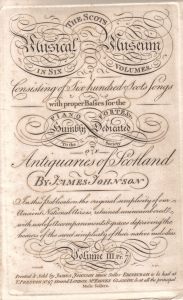 THE SCOTS
Musical Museum
IN SIX VOLUMES.
Consisting of Six hundred Scots Songs
with proper Basses for the
PIANO FORTE &c.
Humbly Dedicated
To the Society
OF
Antiquaries of Scotland
BY JAMES JOHNSON
In this publication the original simplicity of our
Ancient National Airs is retained unincumbered
with useless Accompaniments & graces depriving the
hearers of the sweet simplicity of their native melodies.
Volume III.
Printed & Sold by JAMES JOHNSON Music Seller EDINBURGH to be had at
T. PRESTON Nº 97 Strand LONDON, at all the principal
Music Sellers.